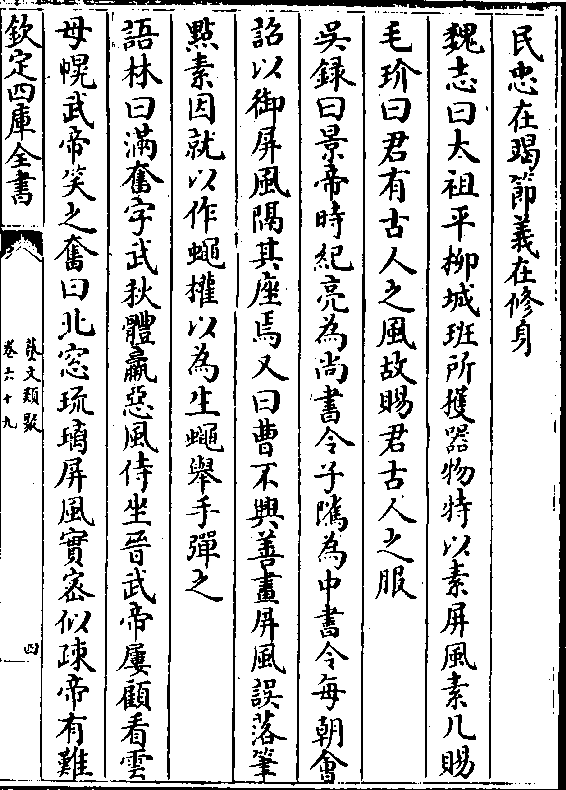 民忠在竭節義在修身
魏志曰太祖平柳城班所獲器物特以素屏風素几賜
毛玠曰君有古人之風故賜君古人之服
吳録曰景帝時紀亮為尚書令子隲為中書令每朝㑹
詔以御屏風隔其座焉又曰曹不興善畫屏風誤落筆
㸃素因就以作蠅權以為生蠅舉手彈之
語林曰滿奮字武秋體羸惡風侍坐晉武帝屢顧看雲
母幌武帝笑之奮曰北窓琉璃屏風實宻似踈帝有難
欽定四庫全書
藝文類聚
卷六十九
四